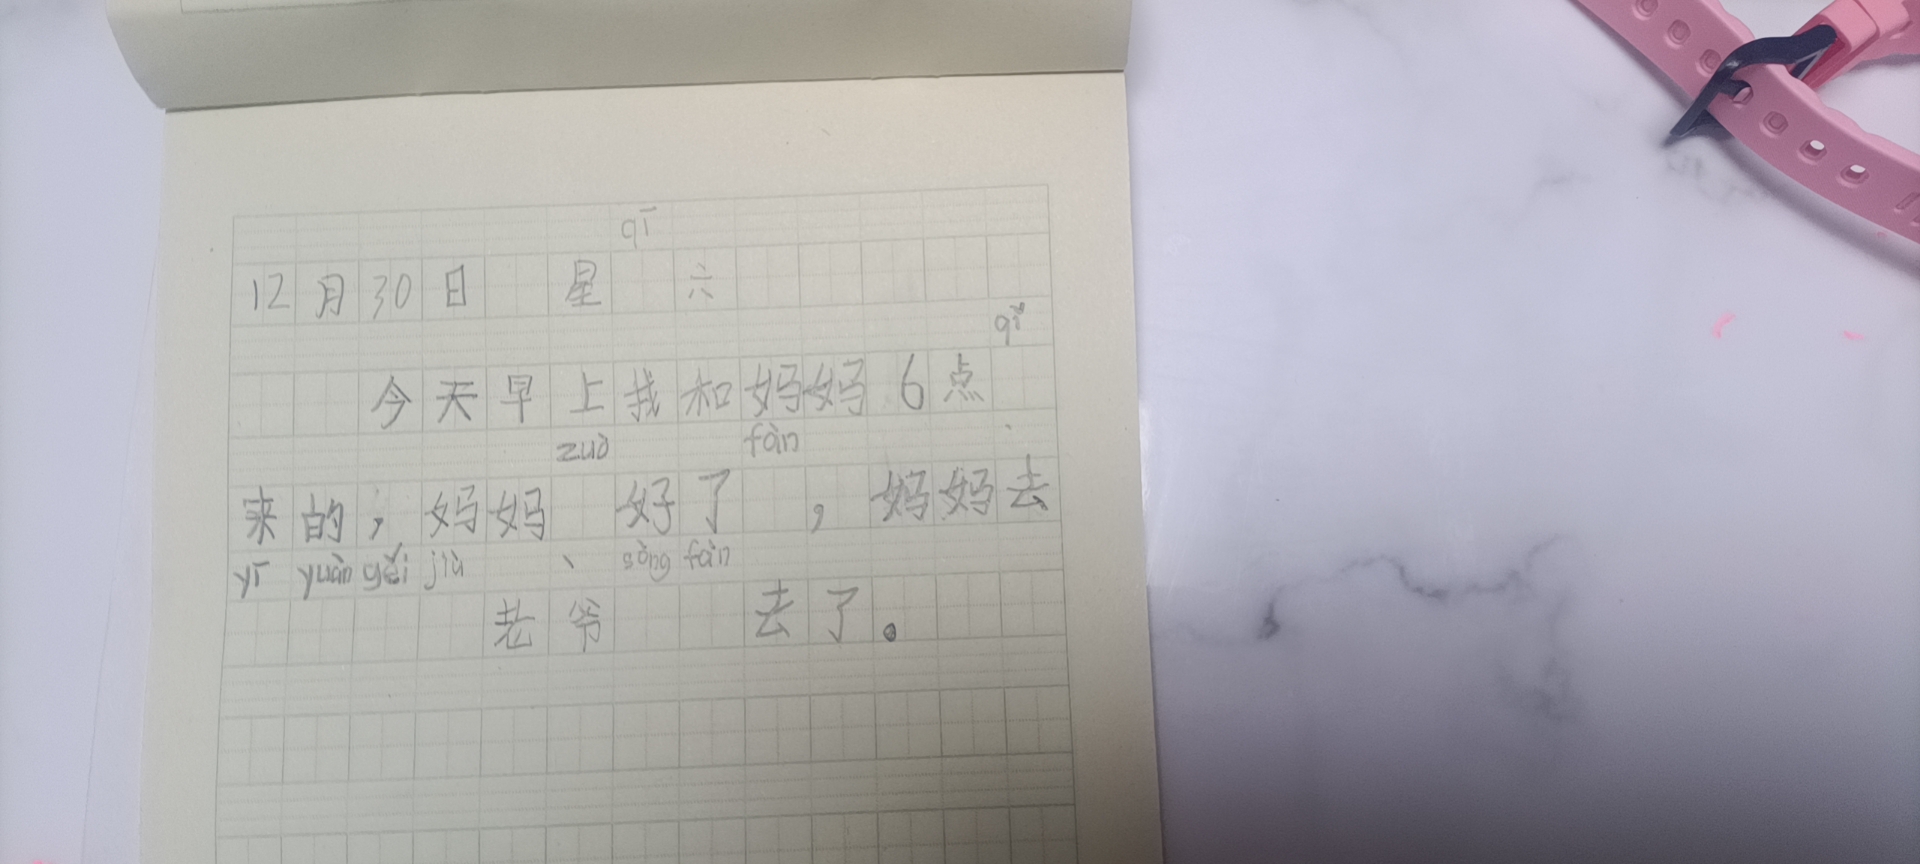 qī
12月30日 星 六
qǐ
今天早上我和妈妈6点
zuò fàn
来的，妈妈 好了 ，妈妈去
yī yuàn gěi jiù sòng fàn
老爷 去了。